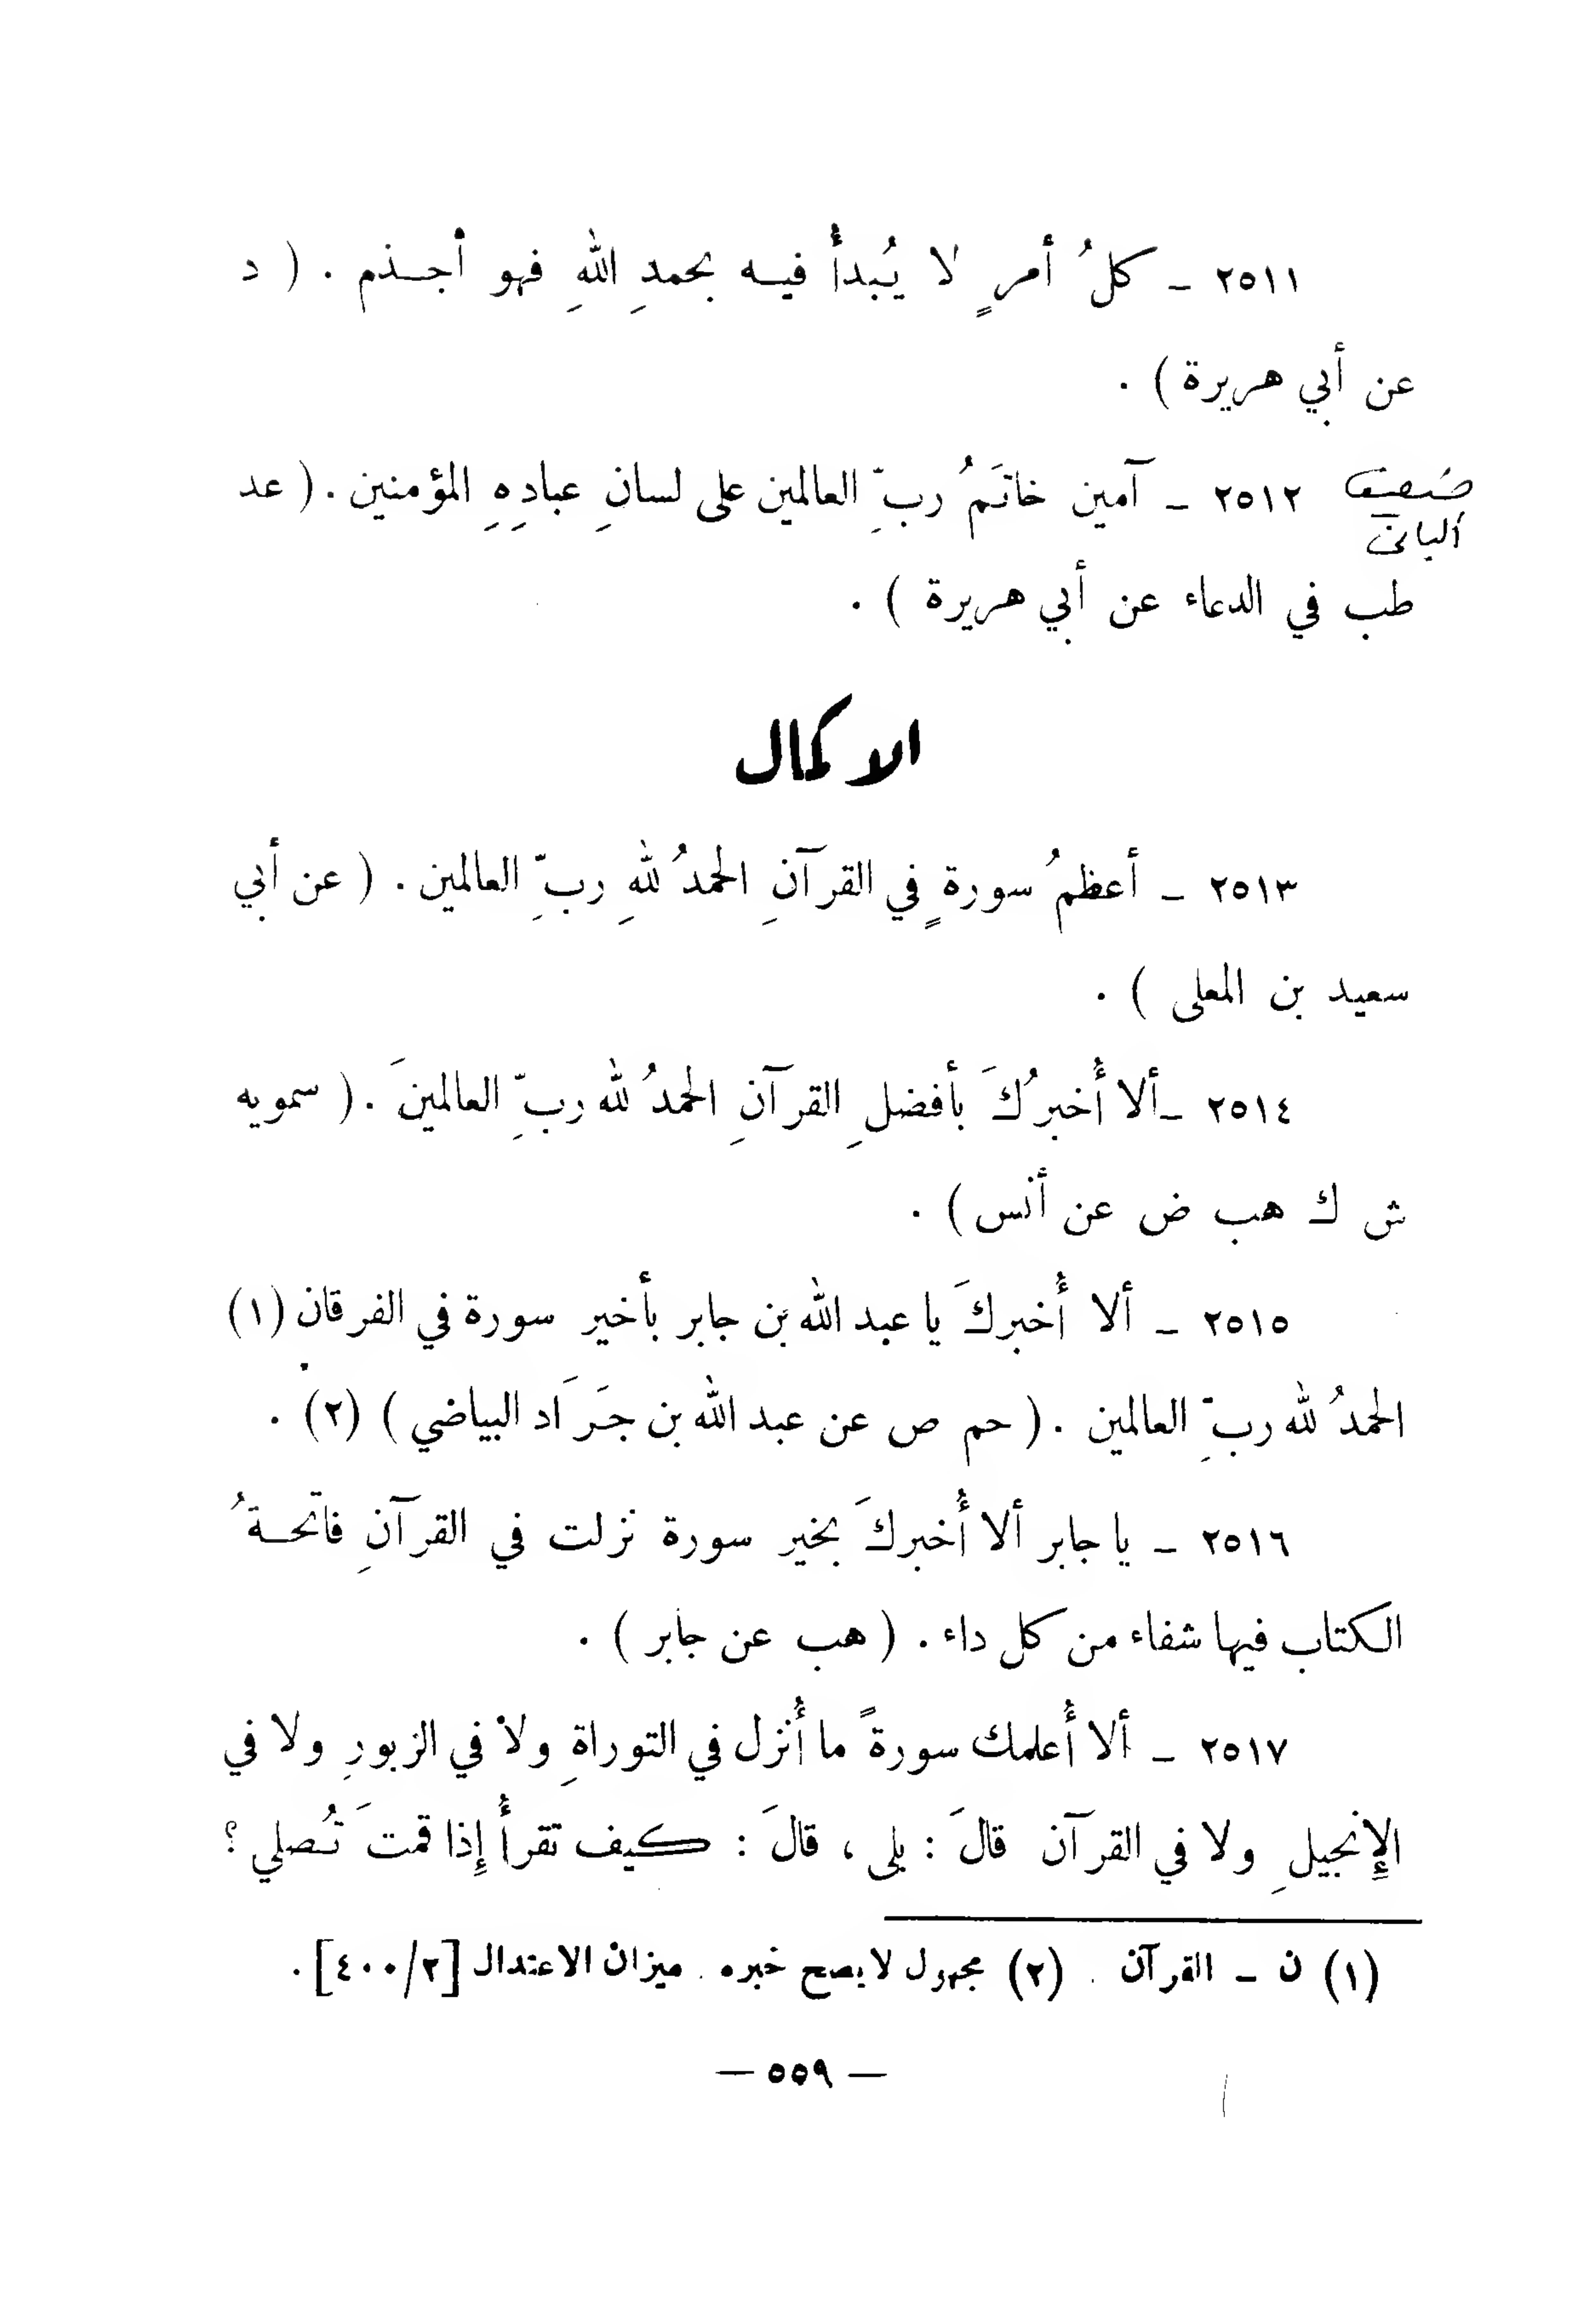 ٢٥١١ - كلُ أمرٍ لا يُبدأُ فيه بحمدِ اللهِ فهو أجذم . ( د
عن أبي هريرة ) .
ضعيف ٢٥١٢ - آمين خاتَمُ ربِّ العالمين على لسانِ عبادِهِ المؤمنين . ( عد
ألباني
طب في الدعاء عن أبي هريرة ) .
الاكمال
٢٥١٣ - أعظمُ سورةٍ في القرآنِ الحمدُ للهِ ربِّ العالمين . ( عن أبي
سعيد بن المعلى ) .
٢٥١٤ - ألا أُخبرُكَ بأفضلِ القرآنِ الحمدُ لله ربِّ العالمينَ . ( سمويه
ش ك هب ض عن أنس ) .
٢٥١٥ - ألا أُخبركَ يا عبد الله بن جابر بأخير سورة في الفرقان (١)
الحمدُ لله ربِّ العالمين . ( حم ص عن عبد الله بن جَرَاد البياضي ) (٢) .
٢٥١٦ - يا جابر ألا أُخبركَ بخير سورة نزلت في القرآنِ فاتحةُ
الكتاب فيها شفاء من كل داء . ( هب عن جابر ) .
٢٥١٧ - ألا أُعلمك سورةً ما أُنزل في التوراةِ ولا في الزبورِ ولا في
الإِنجيلِ ولا في القرآن قالَ : بلى ، قالَ : كيف تقرأُ إِذا قمتَ تُصلي ؟
(١) ن - القرآن . (٢) مجهول لا يصح خبره . ميزان الاعتدال [٤٠٠/٢] .
— ٥٥٩ —